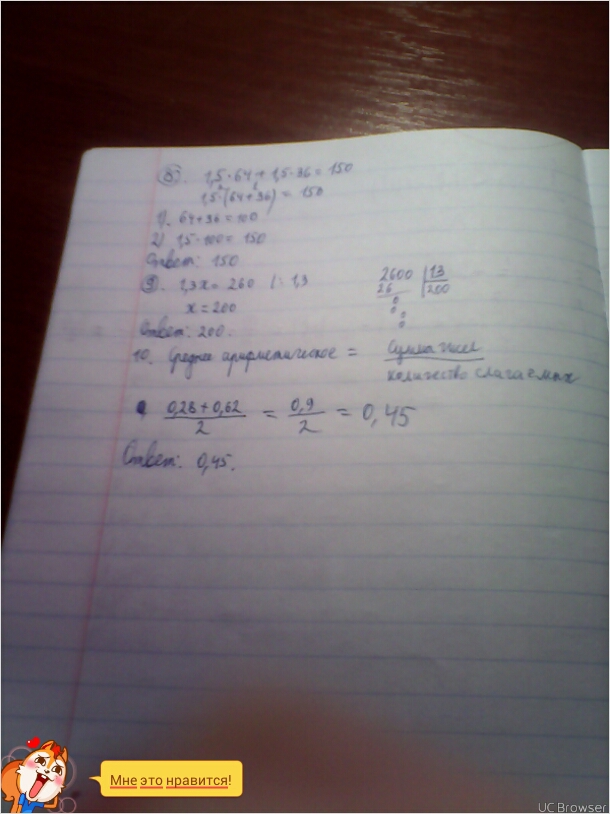 8. 1,5·64+1,5·36=150
1,5·(64+36)=150
1). 64+36=100
2) 1,5·100=150
Ответ: 150
9. 1,3x=260 /:1,3
x=200
Ответ: 200.
2600 | 13
26 | 200
0
0
0
0
10. Среднее арифметическое = Сумма чисел
количество слагаемых
0,28+0,62 / 2 = 0,9 / 2 = 0,45
Ответ: 0,45.
Мне это нравится!
UC Browser